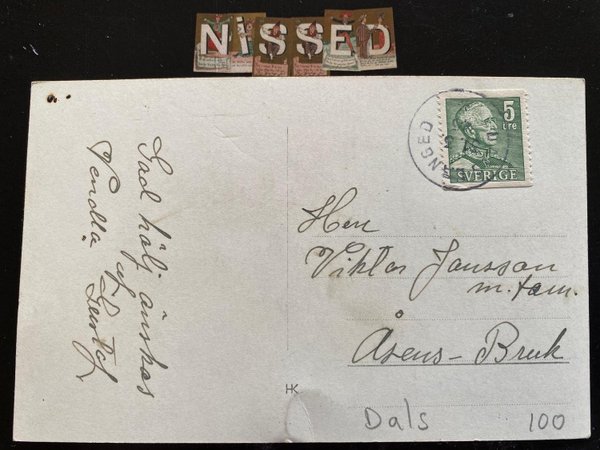 NiSSED
God hälj önskas
Vendla o Gustaf
5
öre
SVERIGE
ÅNGED
Herr
Viktor Jansson
m. fam.
Åsens-Bruk
HK
Dals
100